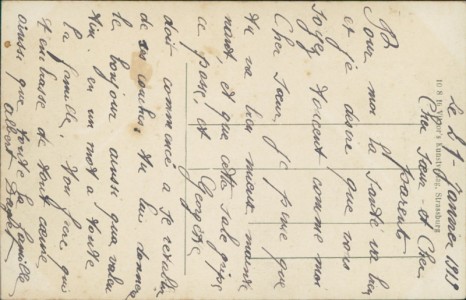 Le 27 Janvier 1919
Cher Sœur et Cher
parent
Pour moi la santé va bien
et je désire que vous
soyez comme moi
Cher Sœur, je pense que
tu va bien mieux mainte
nant, et que cette sale grippe
a passé, et Georgette
doit commencé a se rétablir
de ses couches. Tu lui donnera
le bonjour ainsi que valen
tin, en un mot a toute
la famille. Ton frère qui
t'embrasse de tout cœur
ainsi que toute la famille
Albert
Kunstverlag, Strassburg